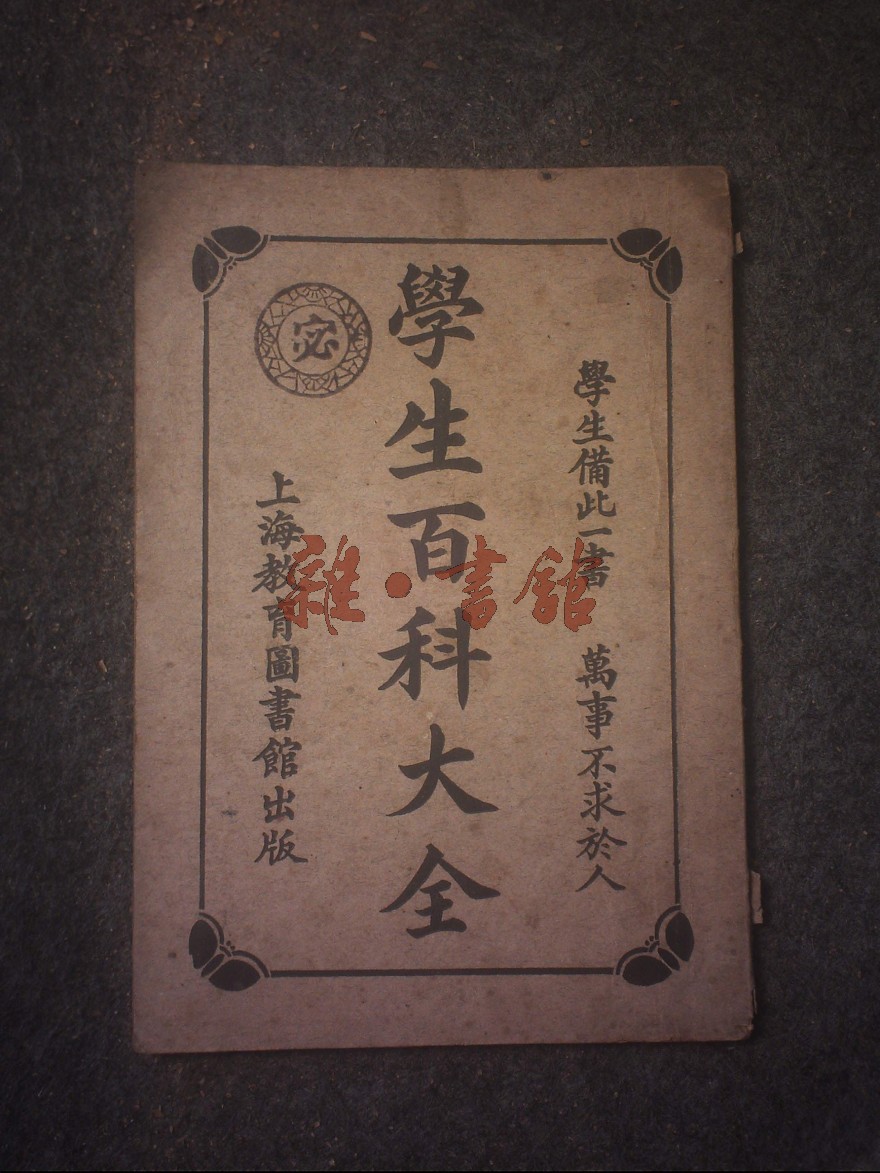 學生備此一書 萬事不求於人
學生百科大全
宓
上海教育圖書館出版
雜·書舘